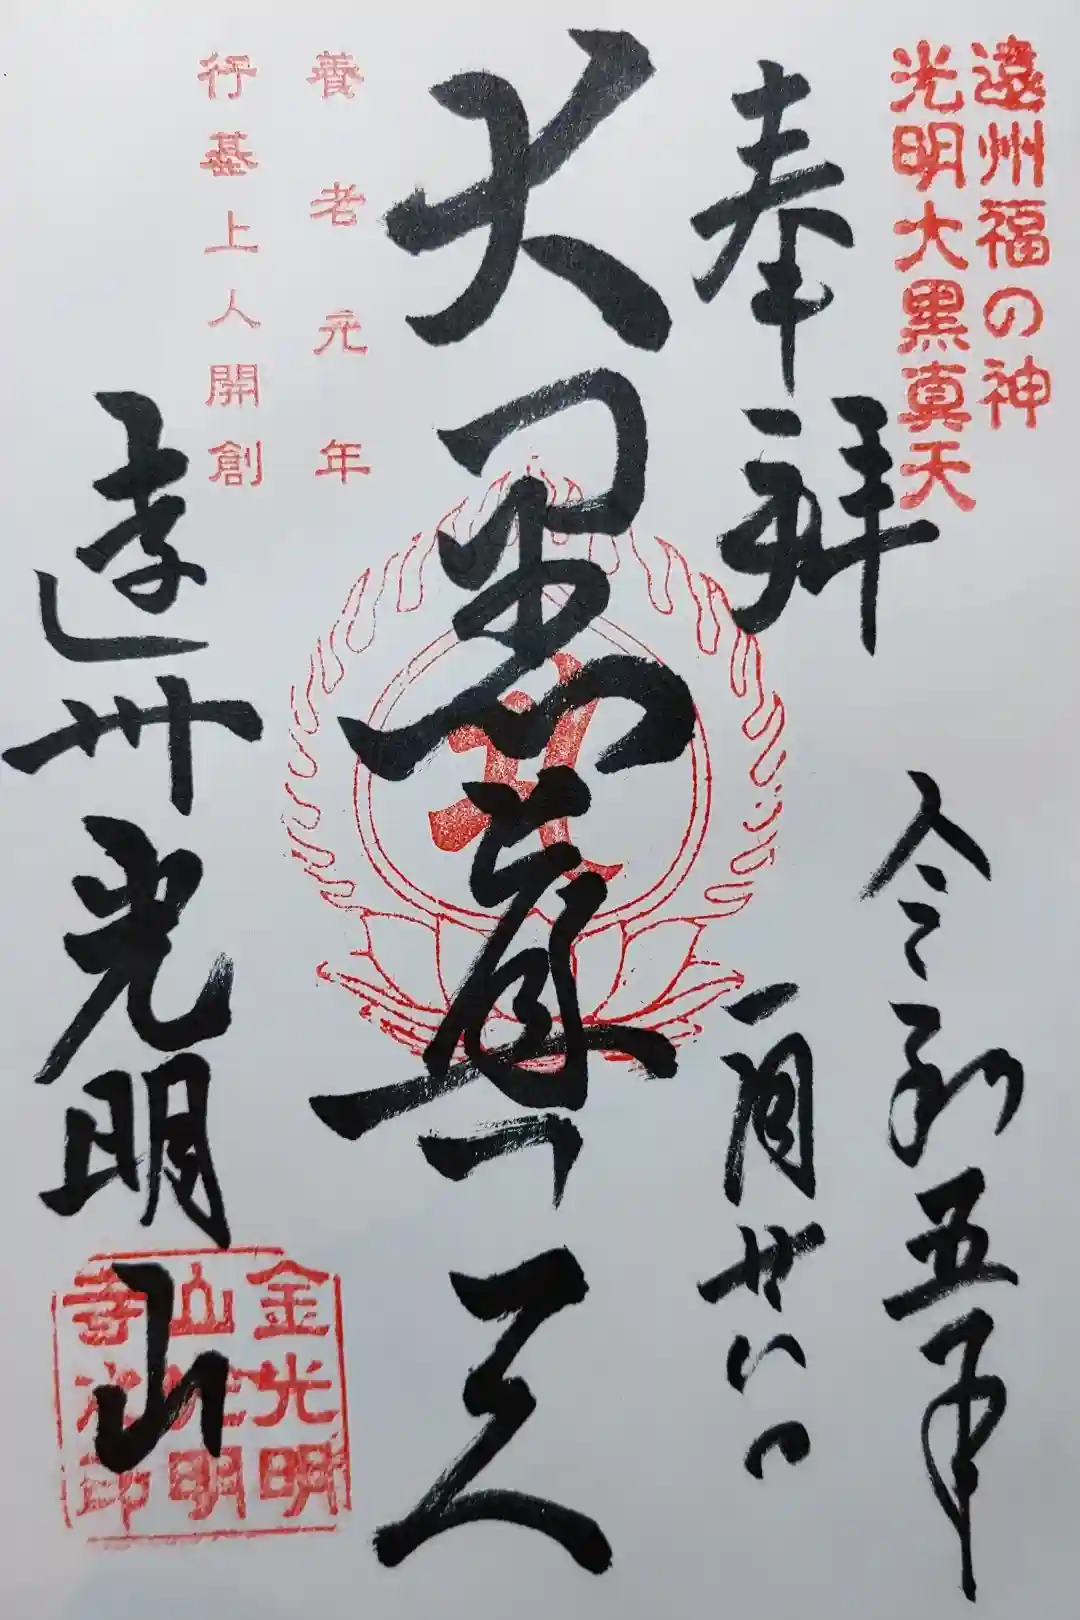 遠州福の神
光明大黒真天
奉拝
令和五年
一月廿八日
大黒真天
養老元年
行基上人開創
遠州光明山
金光明
山光明